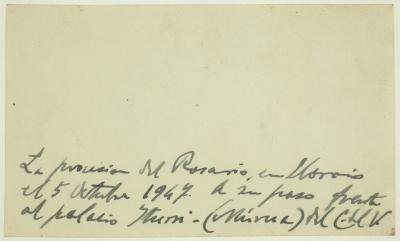 La procesion del Rosario, en Horcio
el 5 Octubre 1947. A su paso frente
al palacio - (Miverva) del C. del V